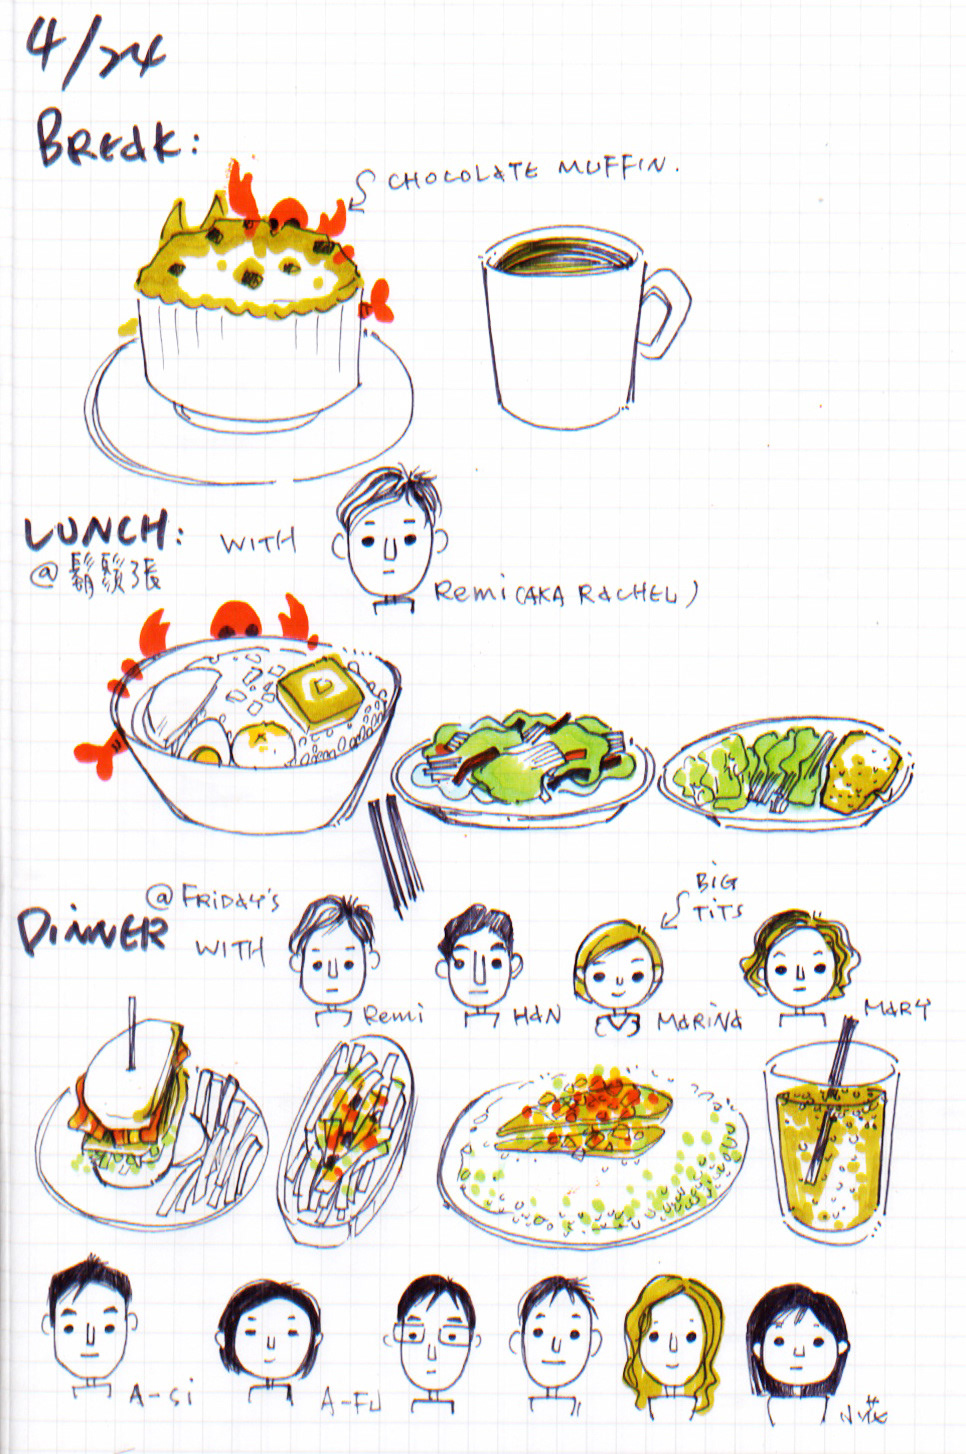 4/24
BREAK:
CHOCOLATE MUFFIN.
LUNCH: WITH
@鬍鬚張
REMI (AKA RACHEL)
@FRIDAY'S
DINNER WITH
BIG
TITS
REMI HAN MARINA MARY
A-SI A-FU 小花